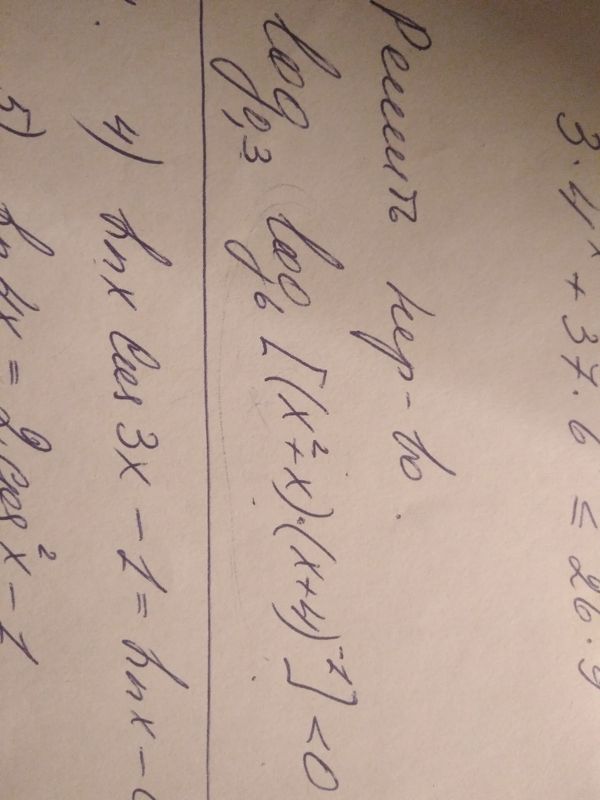 3·4ˣ + 37·6 ≤ 26·9
Решить нер-во.
log₀,₃ log₆ [(x²+x)·(x+4)⁻¹] < 0
4) sin x cos 3x - 1 = sin x -
5) sin 4x = 2 cos² x - 1